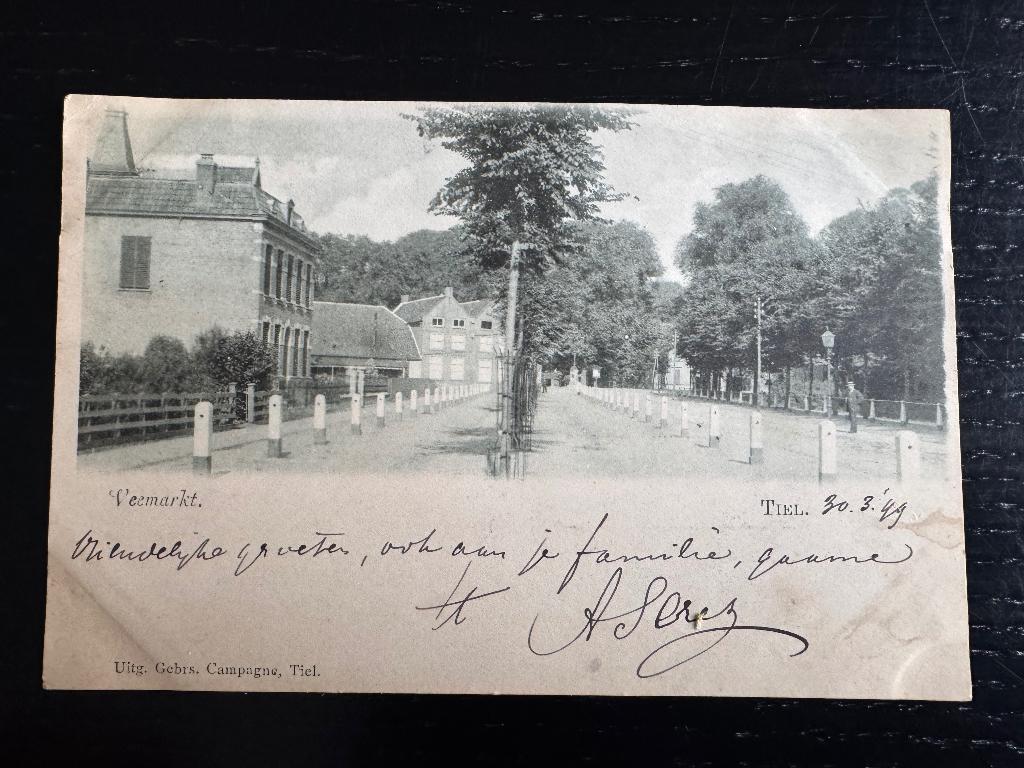 Veemarkt.
TIEL. 30.3.'99
Vriendelijke groeten, ook aan je familie, gaarne
tt
Uitg. Gebrs. Campagne, Tiel.